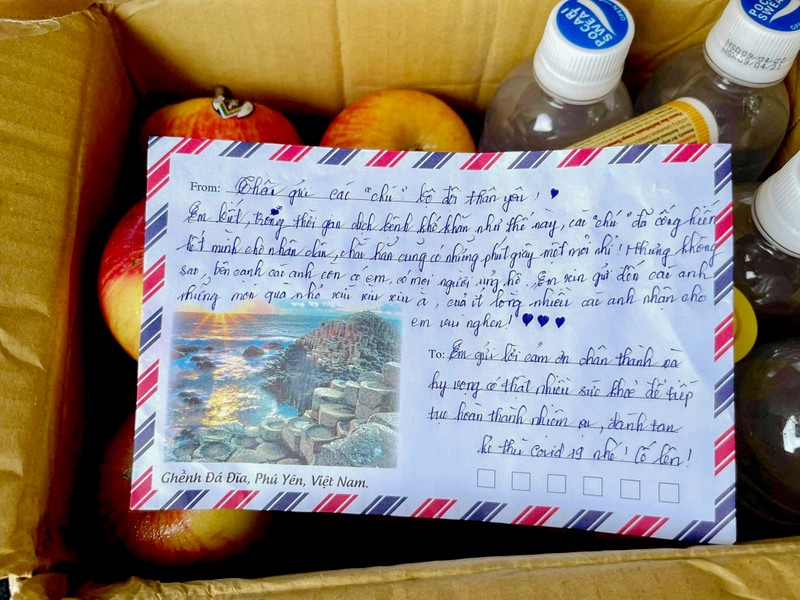 POCARI
SWEAT
POCARI
SWEAT
From: Thân gửi các "chú" bộ đội thân yêu! ♥
Em biết, trong thời gian dịch bệnh khó khăn như thế này, các "chú" đã cống hiến
hết mình cho nhân dân, chắc hẳn cũng có những phút giây mệt mỏi nhỉ! Nhưng không
sao, bên cạnh các anh còn có em, có mọi người ủng hộ. Em xin gửi đến các anh
những món quà nhỏ xíu xiu xiu ạ, của ít lòng nhiều các anh nhận cho
em vui nghen! ♥ ♥ ♥
To: Em gửi lời cảm ơn chân thành và
hy vọng có thật nhiều sức khoẻ để tiếp
tục hoàn thành nhiệm vụ, đánh tan
kẻ thù covid 19 nhé! Cố lên!
Ghềnh Đá Đĩa, Phú Yên, Việt Nam.